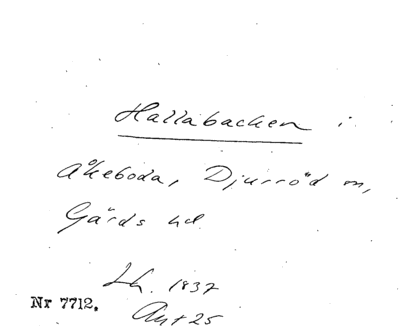 Hallabacken i
Åkeboda, Djurröd m,
Gärds hd.
Lh. 1837
Nr 7712.
Akt 25